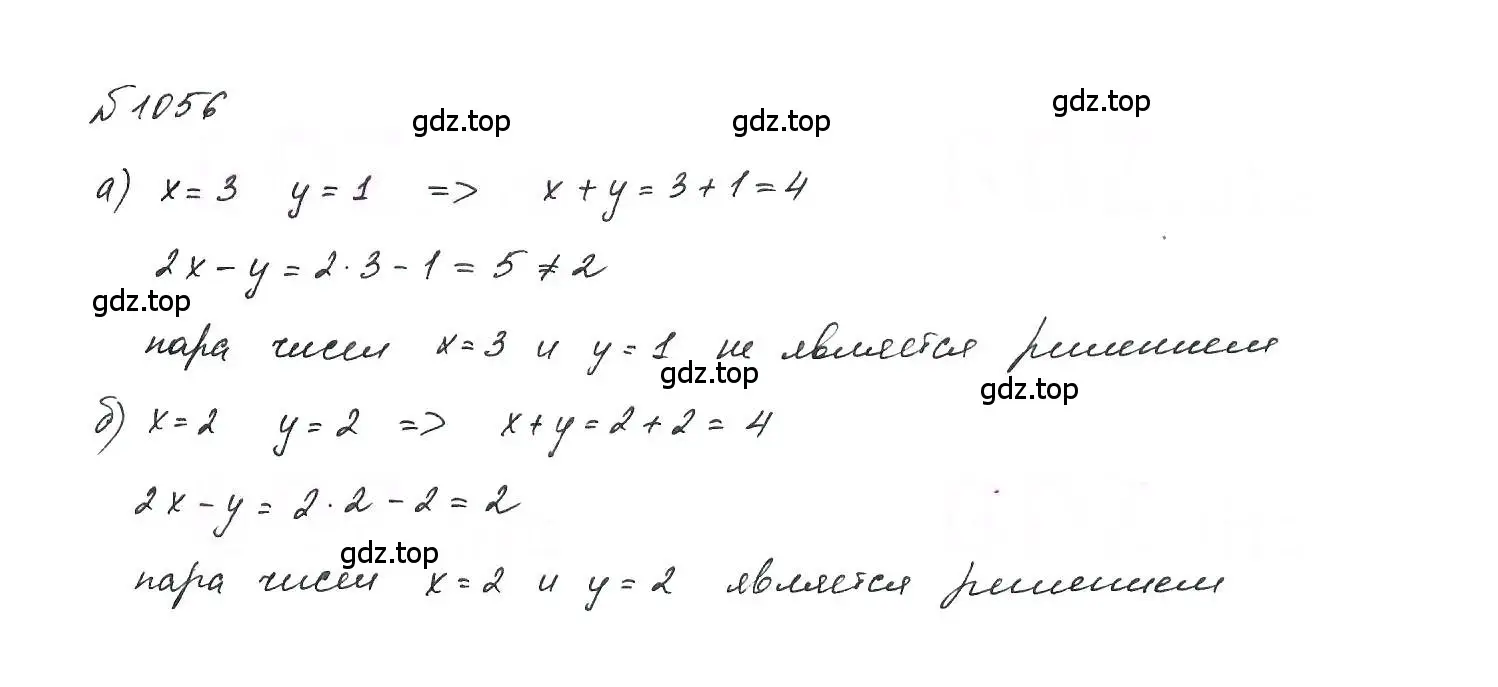 №1056
gdz.top gdz.top gdz.top
а) x = 3 y = 1 => x + y = 3 + 1 = 4
2x - y = 2 · 3 - 1 = 5 ≠ 2
gdz.top
пара чисел x = 3 и y = 1 не является решением
gdz.top gdz.top
б) x = 2 y = 2 => x + y = 2 + 2 = 4
2x - y = 2 · 2 - 2 = 2
gdz.top
пара чисел x = 2 и y = 2 является решением